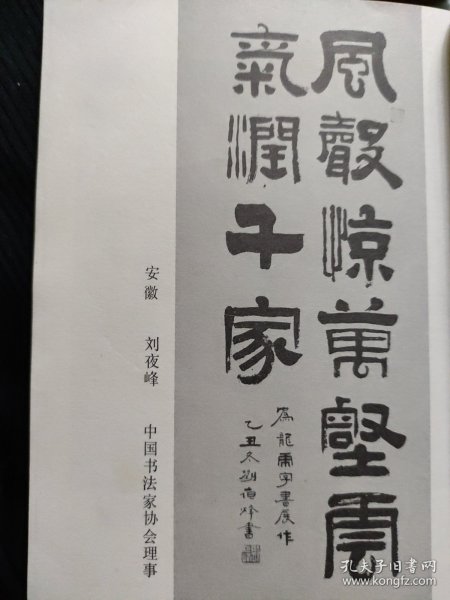 风聲惊萬壑雲
氣潤千家
為龍虎字書展作
乙丑冬劉夜烽書
安徽 刘夜峰 中国书法家协会理事
孔夫子旧书网